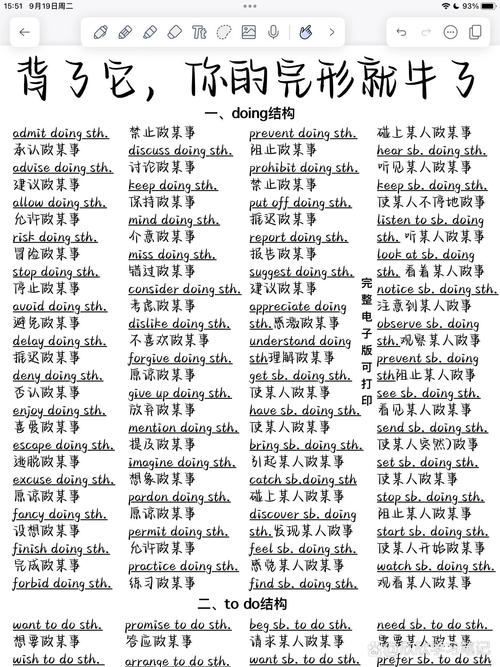 15:51 9月19日周二
93%
背了它，你的完形就牛了
一、doing结构
admit doing sth.
承认做某事
advise doing sth.
建议做某事
allow doing sth.
允许做某事
risk doing sth.
冒险做某事
stop doing sth.
停止做某事
avoid doing sth.
避免做某事
delay doing sth.
推迟做某事
deny doing sth.
否认做某事
enjoy doing sth.
喜爱做某事
escape doing sth.
逃脱做某事
excuse doing sth.
原谅做某事
fancy doing sth.
设想做某事
finish doing sth.
完成做某事
forbid doing sth.
禁止做某事
discuss doing sth.
讨论做某事
keep doing sth.
保持做某事
mind doing sth.
介意做某事
miss doing sth.
错过做某事
consider doing sth.
考虑做某事
dislike doing sth.
不喜欢做某事
forgive doing sth.
原谅做某事
give up doing sth.
放弃做某事
mention doing sth.
提及做某事
imagine doing sth.
想象做某事
pardon doing sth.
原谅做某事
permit doing sth.
允许做某事
practice doing sth.
练习做某事
prevent doing sth.
阻止做某事
prohibit doing sth.
禁止做某事
put off doing sth.
推迟做某事
report doing sth.
报告做某事
suggest doing sth.
建议做某事
appreciate doing
sth.感激做某事
understand doing
sth理解做某事
get sb. doing sth.
使某人做某事
have sb. doing sth.
使某人做某事
bring sb. doing sth.
引起某人做某事
catch sb.doing sth
碰上某人做某事
discover sb. doing
sth.发现某人做某事
feel sb. doing sth.
感觉某人做某事
find sb. doing sth.
碰上某人做某事
hear sb. doing sth.
听见某人做某事
keep sb. doing sth.
使某人不停地做某事
listen to sb. doing
sth. 听某人做某事
look at sb. doing
sth. 看着某人做某事
notice sb. doing sth.
注意到某人做某事
observe sb. doing
sth.观察某人做某事
prevent sb. doing
sth阻止某人做某事
see sb. doing sth.
看见某人做某事
send sb. doing sth.
使某人突然)做事
set sb. doing sth.
使某人做某事
stop sb. doing sth.
阻止某人做某事
start sb. doing sth.
使某人开始做某事
watch sb. doing sth.
观看某人做某事
完整电子版可打印
二、to do结构
want to do sth.
想要做某事
wish to do sth.
promise to do sth.
答应做某事
arrange to do sth.
beg sb. to do sth.
请求某人做某事
want sb. to do sth.
need sb. to do sth.
需要某人做某事
prefer sb. to do sth